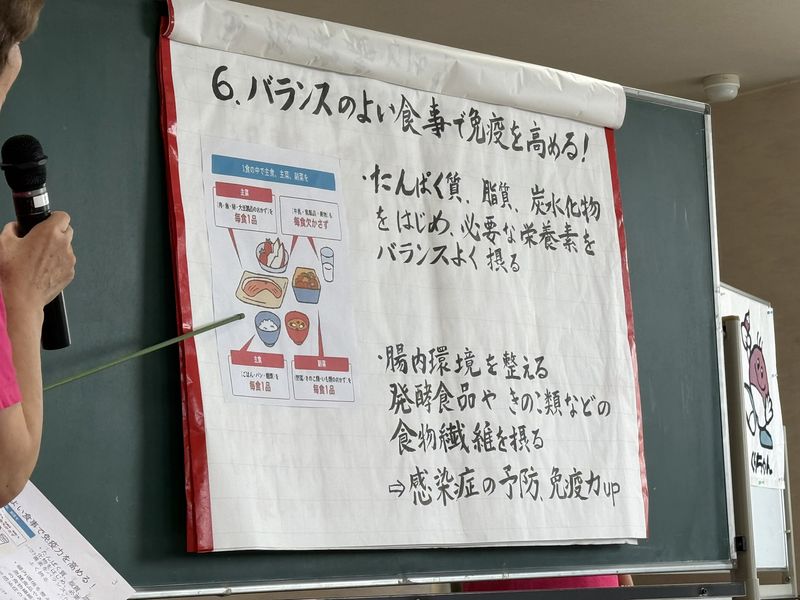 6. バランスのよい食事で免疫を高める!
1食の中で主食、主菜、副菜を
主菜
「肉・魚・卵・大豆製品のおかず」を
毎食1品
「牛乳・乳製品・果物」も
毎食欠かさず
主食
「ごはん・パン・麺類」を
毎食1品
副菜
「野菜・きのこ類・いも類のおかず」を
毎食1品
・たんぱく質、脂質、炭水化物
をはじめ、必要な栄養素を
バランスよく摂る
・腸内環境を整える
発酵食品やきのこ類などの
食物繊維を摂る
⇨感染症の予防、免疫力up
よい食事で免疫力を高める